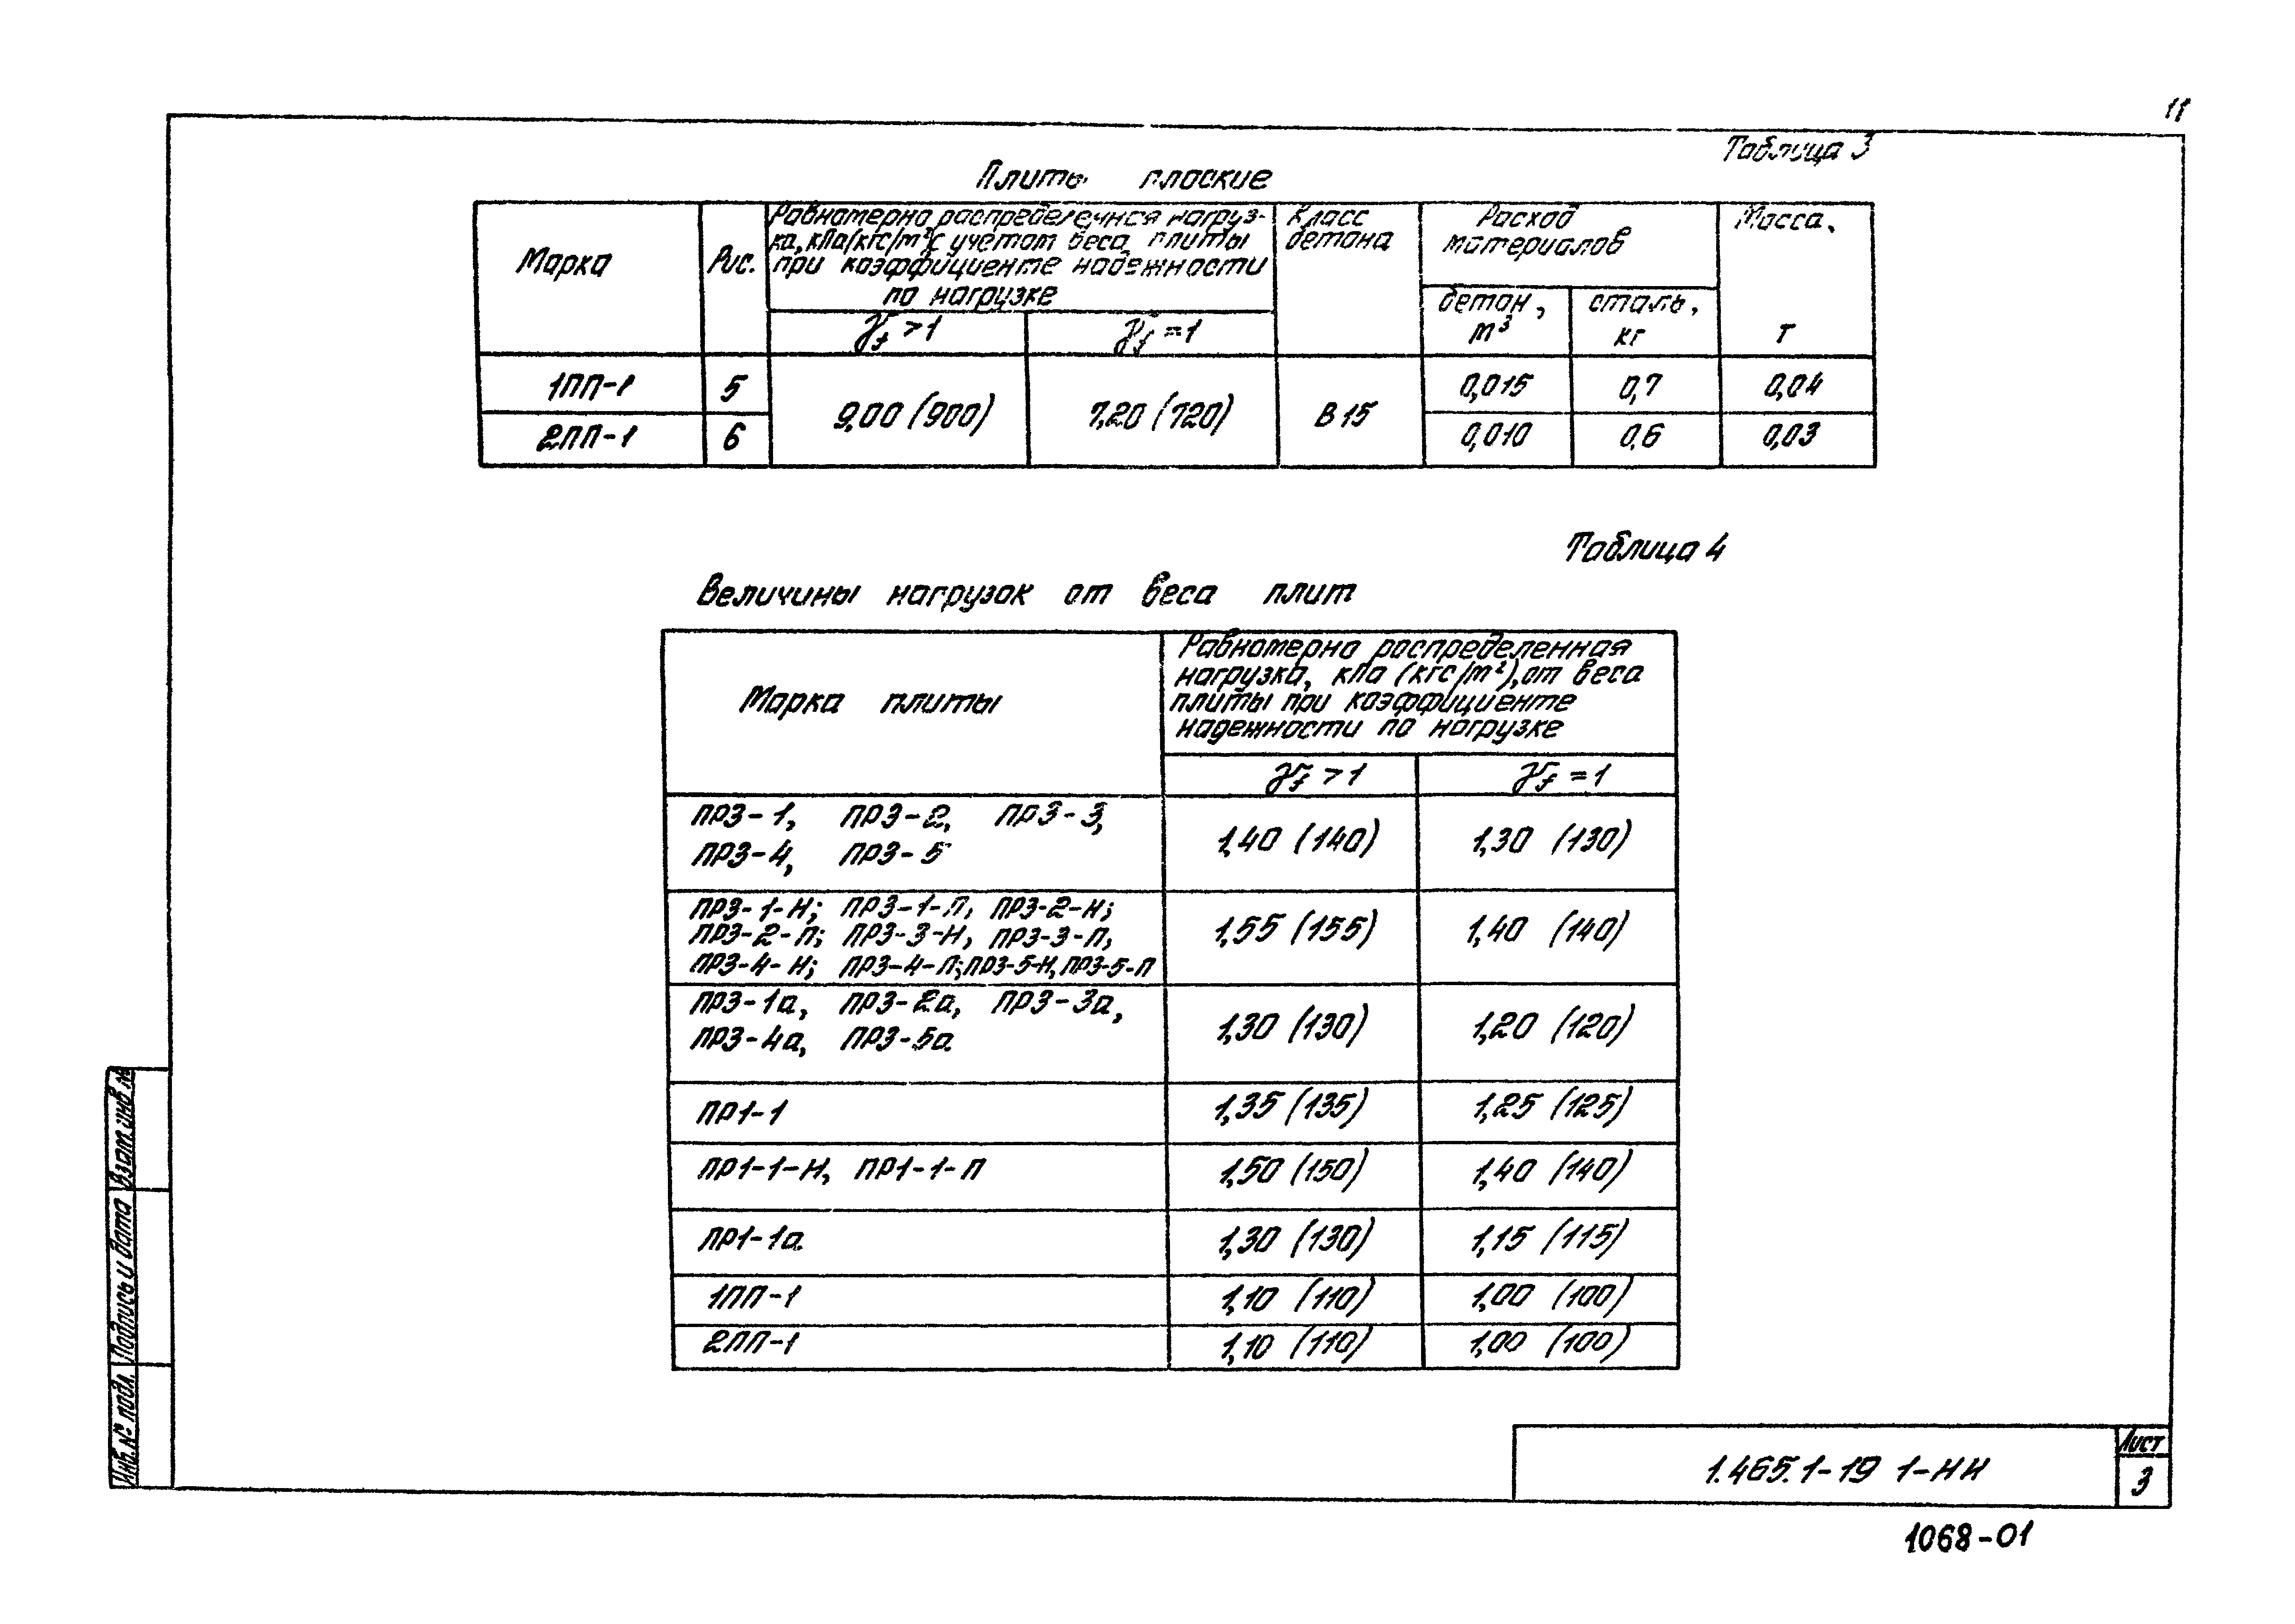 11
Таблица 3
Плиты плоские
Марка
Рис.
Равномерно распределенная нагруз-
ка, кПа (кгс/м²) с учетом веса плиты
при коэффициенте надежности
по нагрузке
γf >1
γf =1
Класс
бетона
Расход
материалов
бетон,
м³
сталь,
кг
Масса,
т
1ПП-1 5 9,00 (900) 7,20 (720) В 15 0,015 0,7 0,04
2ПП-1 6 0,010 0,6 0,03
Таблица 4
Величины нагрузок от веса плит
Марка плиты
Равномерно распределенная
нагрузка, кПа (кгс/м²), от веса
плиты при коэффициенте
надежности по нагрузке
γf >1
γf =1
ПР3-1, ПР3-2, ПР3-3,
ПР3-4, ПР3-5
1,40 (140) 1,30 (130)
ПР3-1-Н; ПР3-1-П, ПР3-2-Н;
ПР3-2-П; ПР3-3-Н, ПР3-3-П,
ПР3-4-Н; ПР3-4-П; ПР3-5-Н, ПР3-5-П
1,55 (155) 1,40 (140)
ПР3-1а, ПР3-2а, ПР3-3а,
ПР3-4а, ПР3-5а
1,30 (130) 1,20 (120)
ПР1-1 1,35 (135) 1,25 (125)
ПР1-1-Н, ПР1-1-П 1,50 (150) 1,40 (140)
ПР1-1а 1,30 (130) 1,15 (115)
1ПП-1 1,10 (110) 1,00 (100)
2ПП-1 1,10 (110) 1,00 (100)
Взам инв №
Подпись и дата
Инв. № подл.
1.465.1-19 1-НИ
Лист
3
1068-01